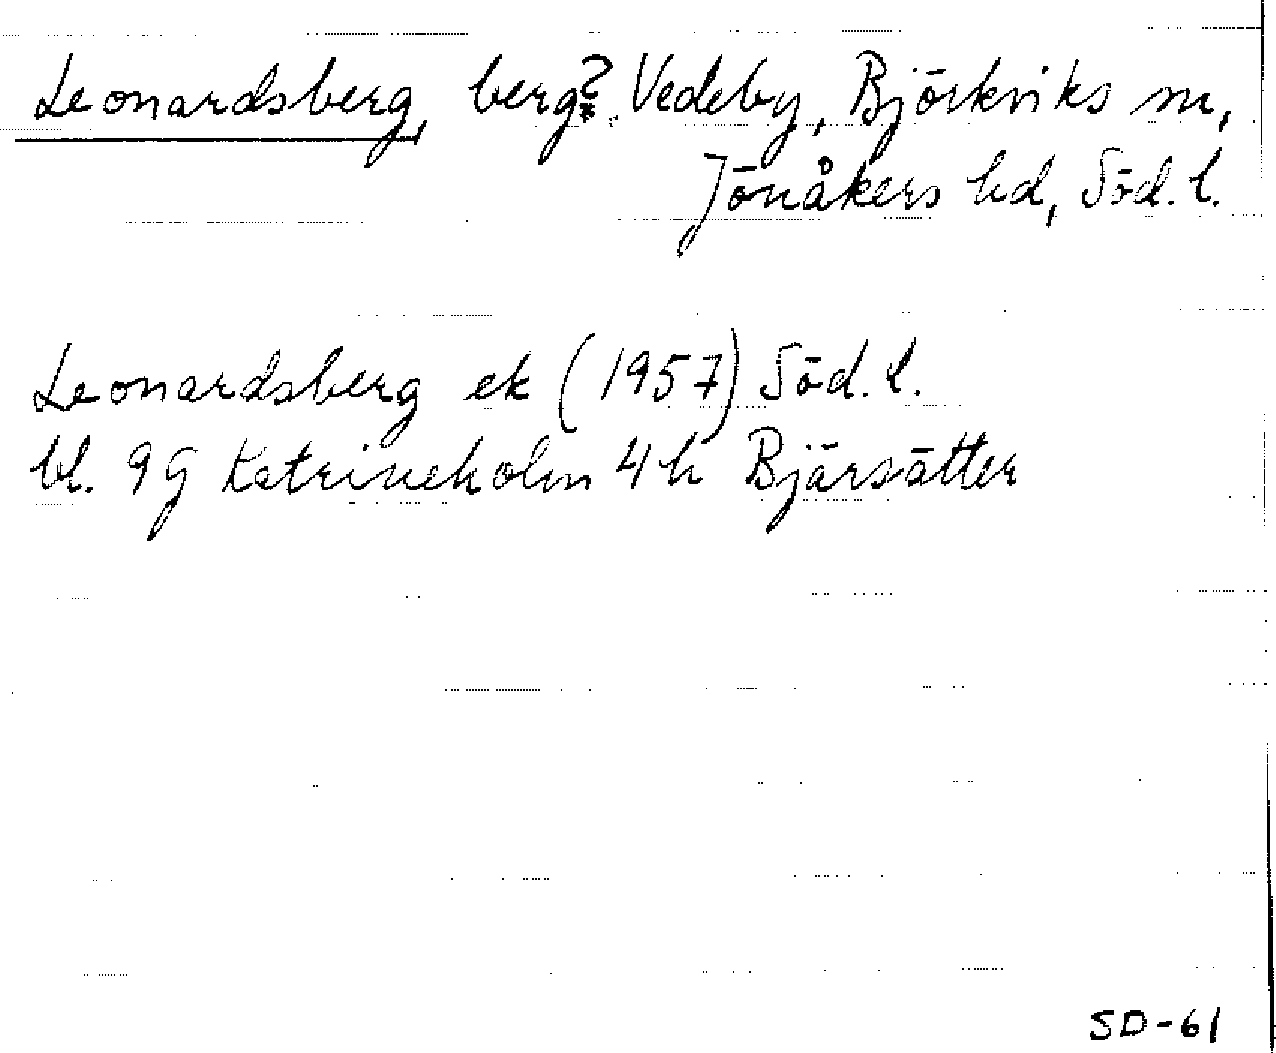 Leonardsberg, berg?, Vedeby, Björkviks sn,
Jönåkers hd, Söd. l.
Leonardsberg ek (1957) Söd. l.
bl. 9G Katrineholm 4h Bjärsätter
SD-61